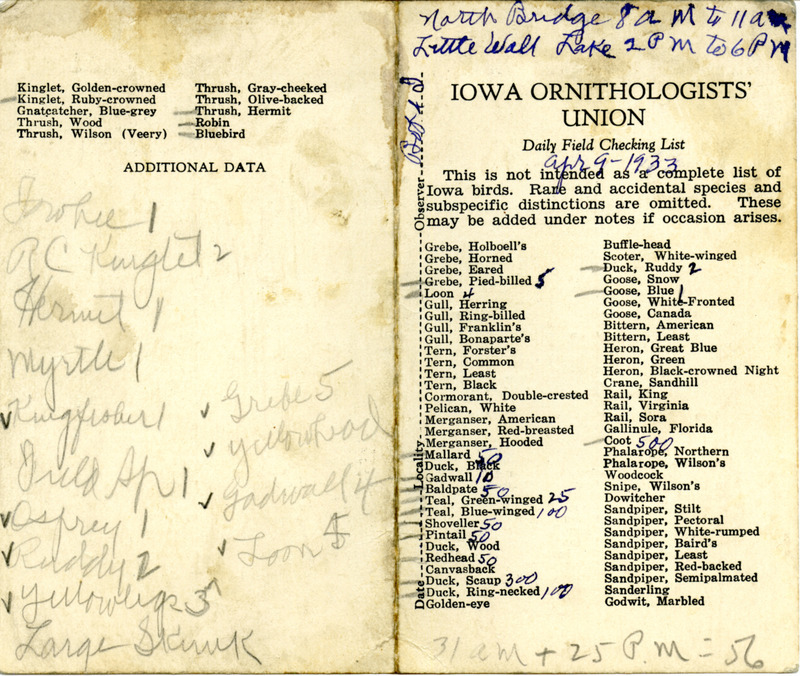 Kinglet, Golden-crowned
Kinglet, Ruby-crowned
Gnatcatcher, Blue-grey
Thrush, Wood
Thrush, Wilson (Veery)
Thrush, Gray-cheeked
Thrush, Olive-backed
Thrush, Hermit
Robin
Bluebird
ADDITIONAL DATA
Towhee 1
R C Kinglet 2
Hermit 1
Myrtle 1
Kingfisher 1
Field Sp 1
Osprey 1
Ruddy 2
Yellowlegs 3
Large Skunk
Grebe 5
Yellowhead
Gadwall 4
Loon
North Bridge 8 a M to 11 a M
Little Wall Lake 2 P M to 6 P M
IOWA ORNITHOLOGISTS'
UNION
Daily Field Checking List
Apr 9-1933
This is not intended as a complete list of
Iowa birds. Rare and accidental species and
subspecific distinctions are omitted. These
may be added under notes if occasion arises.
Date Locality Observer
Grebe, Holboell's
Grebe, Horned
Grebe, Eared
Grebe, Pied-billed 5
Loon 4
Gull, Herring
Gull, Ring-billed
Gull, Franklin's
Gull, Bonaparte's
Tern, Forster's
Tern, Common
Tern, Least
Tern, Black
Cormorant, Double-crested
Pelican, White
Merganser, American
Merganser, Red-breasted
Merganser, Hooded
Mallard 50
Duck, Black
Gadwall 10
Baldpate 50
Teal, Green-winged 25
Teal, Blue-winged 100
Shoveller 50
Pintail 50
Duck, Wood
Redhead 50
Canvasback
Duck, Scaup 300
Duck, Ring-necked 100
Golden-eye
Buffle-head
Scoter, White-winged
Duck, Ruddy 2
Goose, Snow
Goose, Blue 1
Goose, White-Fronted
Goose, Canada
Bittern, American
Bittern, Least
Heron, Great Blue
Heron, Green
Heron, Black-crowned Night
Crane, Sandhill
Rail, King
Rail, Virginia
Rail, Sora
Gallinule, Florida
Coot 500
Phalarope, Northern
Phalarope, Wilson's
Woodcock
Snipe, Wilson's
Dowitcher
Sandpiper, Stilt
Sandpiper, Pectoral
Sandpiper, White-rumped
Sandpiper, Baird's
Sandpiper, Least
Sandpiper, Red-backed
Sandpiper, Semipalmated
Sanderling
Godwit, Marbled
31 am + 25 P.M = 56